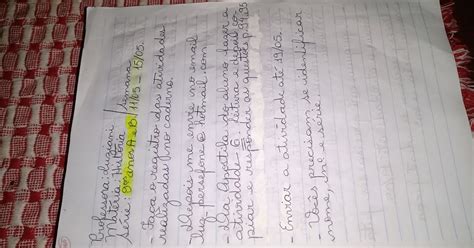 Professora: Lusiani
Matéria: História / Semana
Série: 8º anos A e B, 11/05 - 15/05.
- Faça o registro das atividades
realizadas no caderno.
- Depois me envie no email
persefone@hotmail.com
- Na Apostila do aluno, fazer a
atividade 6, leitura e depois co-
piar e responder as questões p. 94 e 95
- Enviar a atividade até 19/05.
- Vocês precisam se identificar
nome, nº e série.